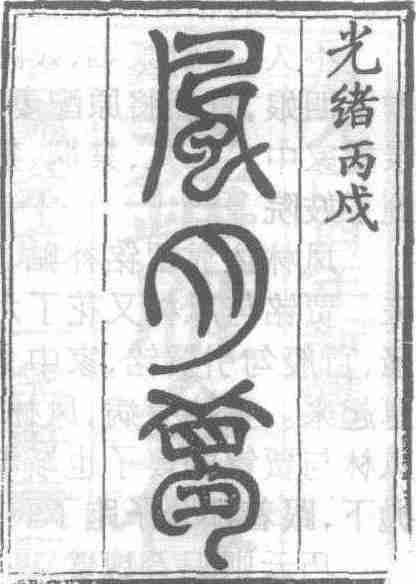 光绪丙戍
風月夢